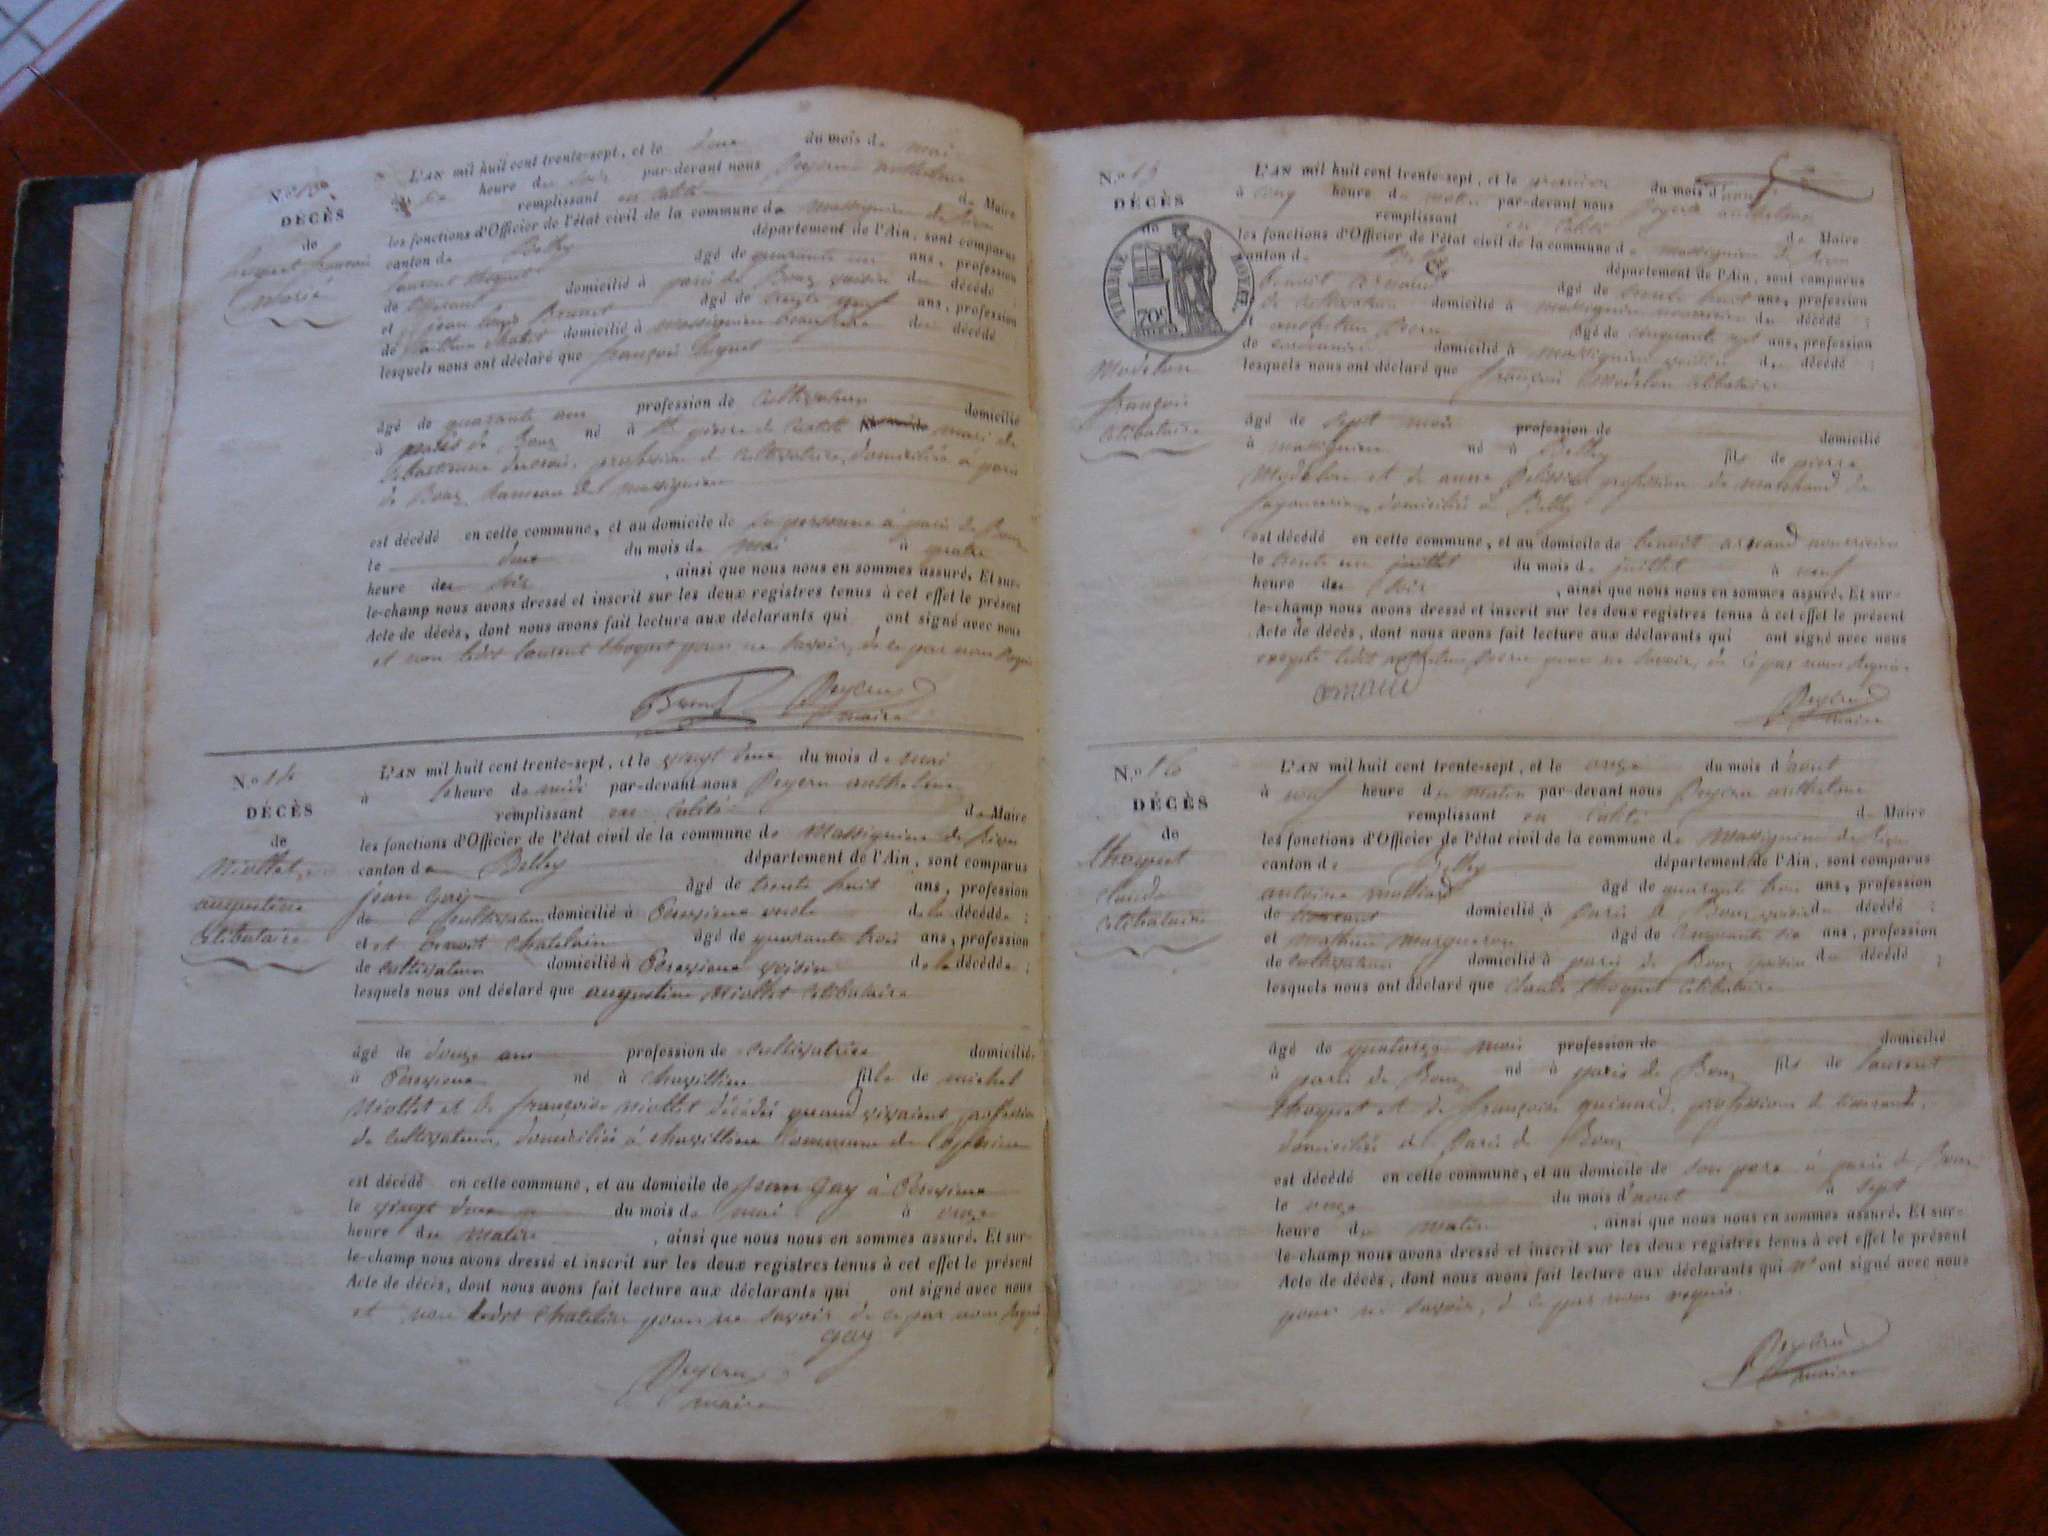 N.º 13
DÉCÈS
de
françois
Marié
L'AN mil huit cent trente-sept, et le douze du mois de mai
à six heure du soir par-devant nous Peyern anthelme
remplissant en calité de Maire
les fonctions d'Officier de l'état civil de la commune de Massignieu de Rives
canton de Belley département de l'Ain, sont comparus
laurent thoquet âgé de quarante un ans, profession
de domicilié à paris de Bouz voisin du décédé ;
et jean Brunet âgé de trente neuf ans, profession
de domicilié à Massignieu beau frère du décédé
lesquels nous ont déclaré que françois
âgé de quarante ans profession de Cultivateur domicilié
à paris de Bouz né à St pierre de mari de
profession de cultivatrice, domiciliée à paris
de Bouz hameau de Massignieu
est décédé en cette commune, et au domicile de sa personne à paris de Bouz
le douze du mois de mai à quatre
heure du soir , ainsi que nous nous en sommes assuré. Et sur-
le-champ nous avons dressé et inscrit sur les deux registres tenus à cet effet le présent
Acte de décès, dont nous avons fait lecture aux déclarants qui ont signé avec nous
et non ledit laurent thoquet pour ne savoir, de ce par nous requis
Brunet Peyern
maire
N.º 14
DÉCÈS
de
Miollet
augustine
Célibataire
L'AN mil huit cent trente-sept, et le vingt deux du mois de mai
à heure de midi par-devant nous Peyern anthelme
remplissant en calité de Maire
les fonctions d'Officier de l'état civil de la commune de Massignieu de Rives
canton de Belley département de l'Ain, sont comparus
jean Gay âgé de trente huit ans, profession
de Cultivateur domicilié à oncle de la décédée ;
et et Benoit Chatelain âgé de quarante trois ans, profession
de cultivateur domicilié à voisin de la décédée ;
lesquels nous ont déclaré que augustine Miollet Célibataire
âgé de douze ans profession de cultivatrice domicilié
à né à Chavillieu fille de michel
Miollet et de françoise Miollet décédés quand vivaient profession
de Cultivateurs, domiciliés à Chavillieu Commune de
est décédé en cette commune, et au domicile de Jean Gay à
le vingt deux du mois de mai à onze
heure du matin , ainsi que nous nous en sommes assuré. Et sur-
le-champ nous avons dressé et inscrit sur les deux registres tenus à cet effet le présent
Acte de décès, dont nous avons fait lecture aux déclarants qui ont signé avec nous
et non ledit Chatelain pour ne savoir de ce par nous requis
Gay
Peyern
maire
N.º 15
DÉCÈS
de
TIMBRE ROYAL
70c
Modelon
françois
Célibataire
L'AN mil huit cent trente-sept, et le premier du mois d'aout
à cinq heure du matin par-devant nous Peyern anthelme
remplissant en calité de Maire
les fonctions d'Officier de l'état civil de la commune de Massignieu de Rives
canton de Belley département de l'Ain, sont comparus
Benoit âgé de trente huit ans, profession
de cultivateur domicilié à Massignieu nourricier du décédé ;
et âgé de cinquante sept ans, profession
de domicilié à Massignieu voisin du décédé ;
lesquels nous ont déclaré que françois Modelon célibataire
âgé de sept mois profession de domicilié
à Massignieu né à Belley fils de pierre
Modelon et de anne profession de marchand de
domiciliés à Belley
est décédé en cette commune, et au domicile de benoit nourricier
le trente un juillet du mois de juillet à neuf
heure du soir , ainsi que nous nous en sommes assuré. Et sur-
le-champ nous avons dressé et inscrit sur les deux registres tenus à cet effet le présent
Acte de décès, dont nous avons fait lecture aux déclarants qui ont signé avec nous
excepté ledit pour ne savoir, de ce par nous requis.
Peyern
maire
N.º 16
DÉCÈS
de
thoquet
claude
célibataire
L'AN mil huit cent trente-sept, et le onze du mois d'aout
à neuf heure du matin par-devant nous Peyern anthelme
remplissant en calité de Maire
les fonctions d'Officier de l'état civil de la commune de Massignieu de Rives
canton de Belley département de l'Ain, sont comparus
antoine âgé de quarante trois ans, profession
de domicilié à paris de Bouz voisin du décédé ;
et mathieu âgé de cinquante six ans, profession
de cultivateur domicilié à paris de Bouz voisin du décédé ;
lesquels nous ont déclaré que claude thoquet célibataire
âgé de quatorze mois profession de domicilié
à paris de Bouz né à paris de Bouz fils de laurent
thoquet et de françoise profession de
domiciliés à Paris de Bouz
est décédé en cette commune, et au domicile de son père à paris de Bouz
le onze du mois d'aout à sept
heure du matin , ainsi que nous nous en sommes assuré. Et sur-
le-champ nous avons dressé et inscrit sur les deux registres tenus à cet effet le présent
Acte de décès, dont nous avons fait lecture aux déclarants qui n'ont signé avec nous
pour ne savoir, de ce par nous requis.
Peyern
maire